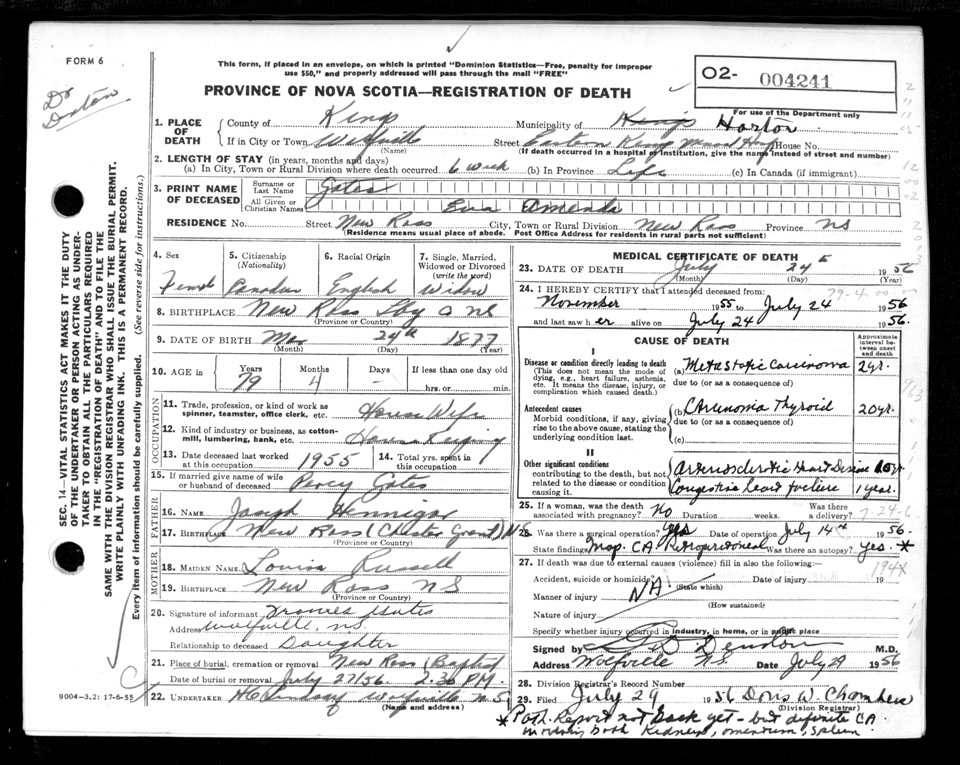 FORM 6
This form, if placed in an envelope, on which is printed "Dominion Statistics—Free, penalty for improper
use $50," and properly addressed will pass through the mail "FREE"
O2- 004241
For use of the Department only
PROVINCE OF NOVA SCOTIA—REGISTRATION OF DEATH
Dr
Denton
SEC. 14—VITAL STATISTICS ACT MAKES IT THE DUTY
OF THE UNDERTAKER OR PERSON ACTING AS UNDER-
TAKER TO OBTAIN ALL THE PARTICULARS REQUIRED
IN THE "REGISTRATION OF DEATH" AND TO FILE THE
SAME WITH THE DIVISION REGISTRAR WHO SHALL ISSUE THE BURIAL PERMIT.
WRITE PLAINLY WITH UNFADING INK. THIS IS A PERMANENT RECORD.
Every item of information should be carefully supplied. (See reverse side for instructions.)
1. PLACE OF DEATH
County of Kings Municipality of Kings Horton
If in City or Town Wolfville Street Eastern Kings Mem Hosp House No.
(Name) (If death occurred in a hospital or institution, give the name instead of street and number)
2. LENGTH OF STAY (in years, months and days)
(a) In City, Town or Rural Division where death occurred 6 week (b) In Province Life (c) In Canada (if immigrant)
3. PRINT NAME OF DECEASED
Surname or Last Name Gates
All Given or Christian Names Eva Amenda
RESIDENCE No. Street New Ross City, Town or Rural Division New Ross Province NS
(Residence means usual place of abode. Post Office Address for residents in rural parts not sufficient)
4. Sex
Femal
5. Citizenship
(Nationality)
Canadian
6. Racial Origin
English
7. Single, Married,
Widowed or Divorced
(write the word)
Widow
8. BIRTHPLACE New Ross NS
(Province or Country)
9. DATE OF BIRTH Mar 24th 1877
(Month) (Day) (Year)
10. AGE in Years Months Days If less than one day old
79 4 - hrs. or min.
OCCUPATION
11. Trade, profession, or kind of work as
spinner, teamster, office clerk, etc. House Wife
12. Kind of industry or business, as cotton-
mill, lumbering, bank, etc. House Keeping
13. Date deceased last worked
at this occupation 1955
14. Total yrs. spent in
this occupation
15. If married give name of wife
or husband of deceased Percy Gates
FATHER
16. NAME Joseph Hennigar
17. BIRTHPLACE New Ross (Chester Grant) NS
(Province or Country)
MOTHER
18. MAIDEN NAME Louisa Russell
19. BIRTHPLACE New Ross NS
(Province or Country)
20. Signature of informant Frances Gates
Address Wolfville, NS.
Relationship to deceased Daughter
21. Place of burial, cremation or removal New Ross (Baptist
Date of burial or removal July 27/56 2:30 P.M.
22. UNDERTAKER HC Lindsay Wolfville N.S.
(Name and address)
9004-3.2: 17-6-55
MEDICAL CERTIFICATE OF DEATH
23. DATE OF DEATH July 24th 1956
(Month) (Day)
24. I HEREBY CERTIFY that I attended deceased from:
79-4-00
November 1955 to July 24 1956
and last saw h er alive on July 24 1956.
CAUSE OF DEATH
Approximate
interval be-
tween onset
and death
I
Disease or condition directly leading to death
(This does not mean the mode of
dying, e.g., heart failure, asthenia,
etc. It means the disease, injury, or
complication which caused death.)
(a) Metastatic Carcinoma 2yr.
due to (or as a consequence of)
Antecedent causes
Morbid conditions, if any, giving
rise to the above cause, stating the
underlying condition last.
(b) Carcinoma Thyroid 20yr.
due to (or as a consequence of)
(c)
II
Other significant conditions
contributing to the death, but not
related to the disease or condition
causing it.
Arteriosclerotic Heart Disease 10yr
Congestive heart failure 1 year.
25. If a woman, was the death
associated with pregnancy? No Duration weeks. Was there
a delivery?
7-24-6
26. Was there a surgical operation? Yes Date of operation July 14th 1956.
State findings Inop. CA Retroperitoneal Was there an autopsy? Yes. *
27. If death was due to external causes (violence) fill in also the following:
194x
Accident, suicide or homicide? Date of injury 19
(State which)
Manner of injury NA.
(How sustained)
Nature of injury
Specify whether injury occurred in industry, in home, or in public place
Signed by Denton M.D.
Address Wolfville N.S. Date July 29 1956
28. Division Registrar's Record Number
29. Filed July 29 1956 Doris W. Chambers
(Division Registrar)
* Path. Report not back yet - but definite CA
involving both Kidneys, omentum, spleen.